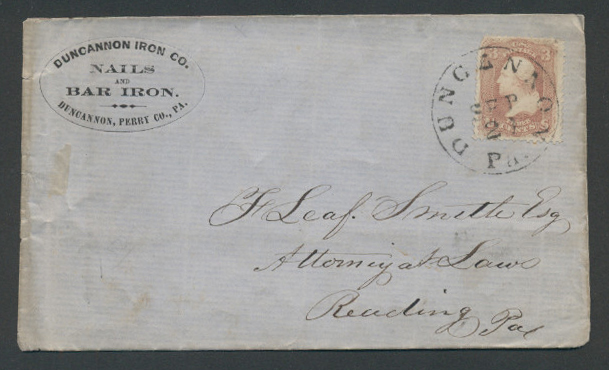 DUNCANNON IRON CO.
NAILS
AND
BAR IRON.
DUNCANNON, PERRY CO., PA.
DUNCANNON
SEP
Pa.
F Leaf. Smith Esq
Attorney at Law
Reading Pa